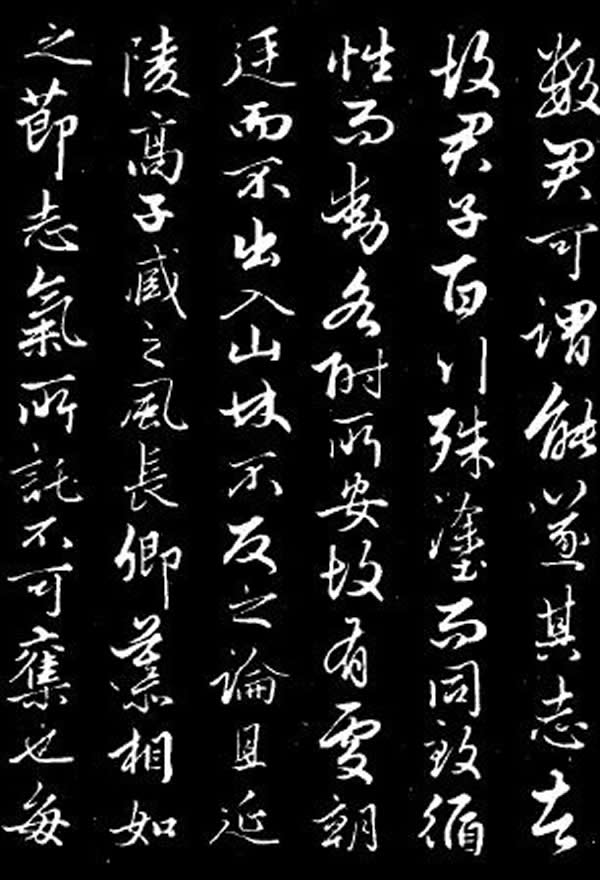 數君可謂能遂其志者
故君子百行殊塗而同致循
性而動各附所安故有處朝
廷而不出入山林不反之論且延
陵高子臧之風長卿慕相如
之節志氣所託不可奪也每